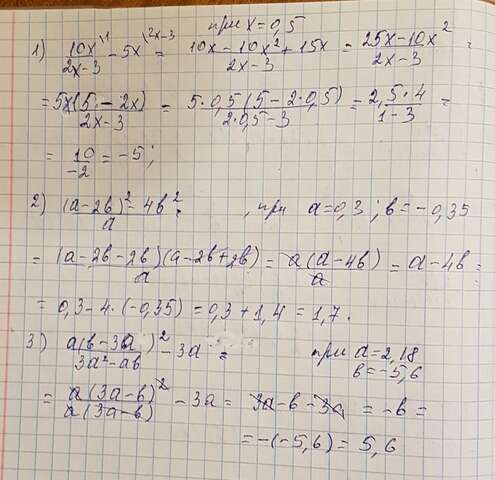 при x=0,5
1) 10x\1 / 2x-3 - 5x\2x-3 = 10x-10x²+15x / 2x-3 = 25x-10x² / 2x-3 =
= 5x(5-2x) / 2x-3 = 5·0,5(5-2·0,5) / 2·0,5-3 = 2,5·4 / 1-3 =
= 10 / -2 = -5;
2) (a-2b)²-4b² / a , при a=0,3; b=-0,35
= (a-2b-2b)(a-2b+2b) / a = a(a-4b) / a = a-4b =
= 0,3-4·(-0,35) = 0,3+1,4 = 1,7.
3) a(b-3a)² / 3a²-ab - 3a = при a=2,18
b=-5,6
= a(3a-b)² / a(3a-b) - 3a = 3a-b-3a = -b =
= -(-5,6) = 5,6